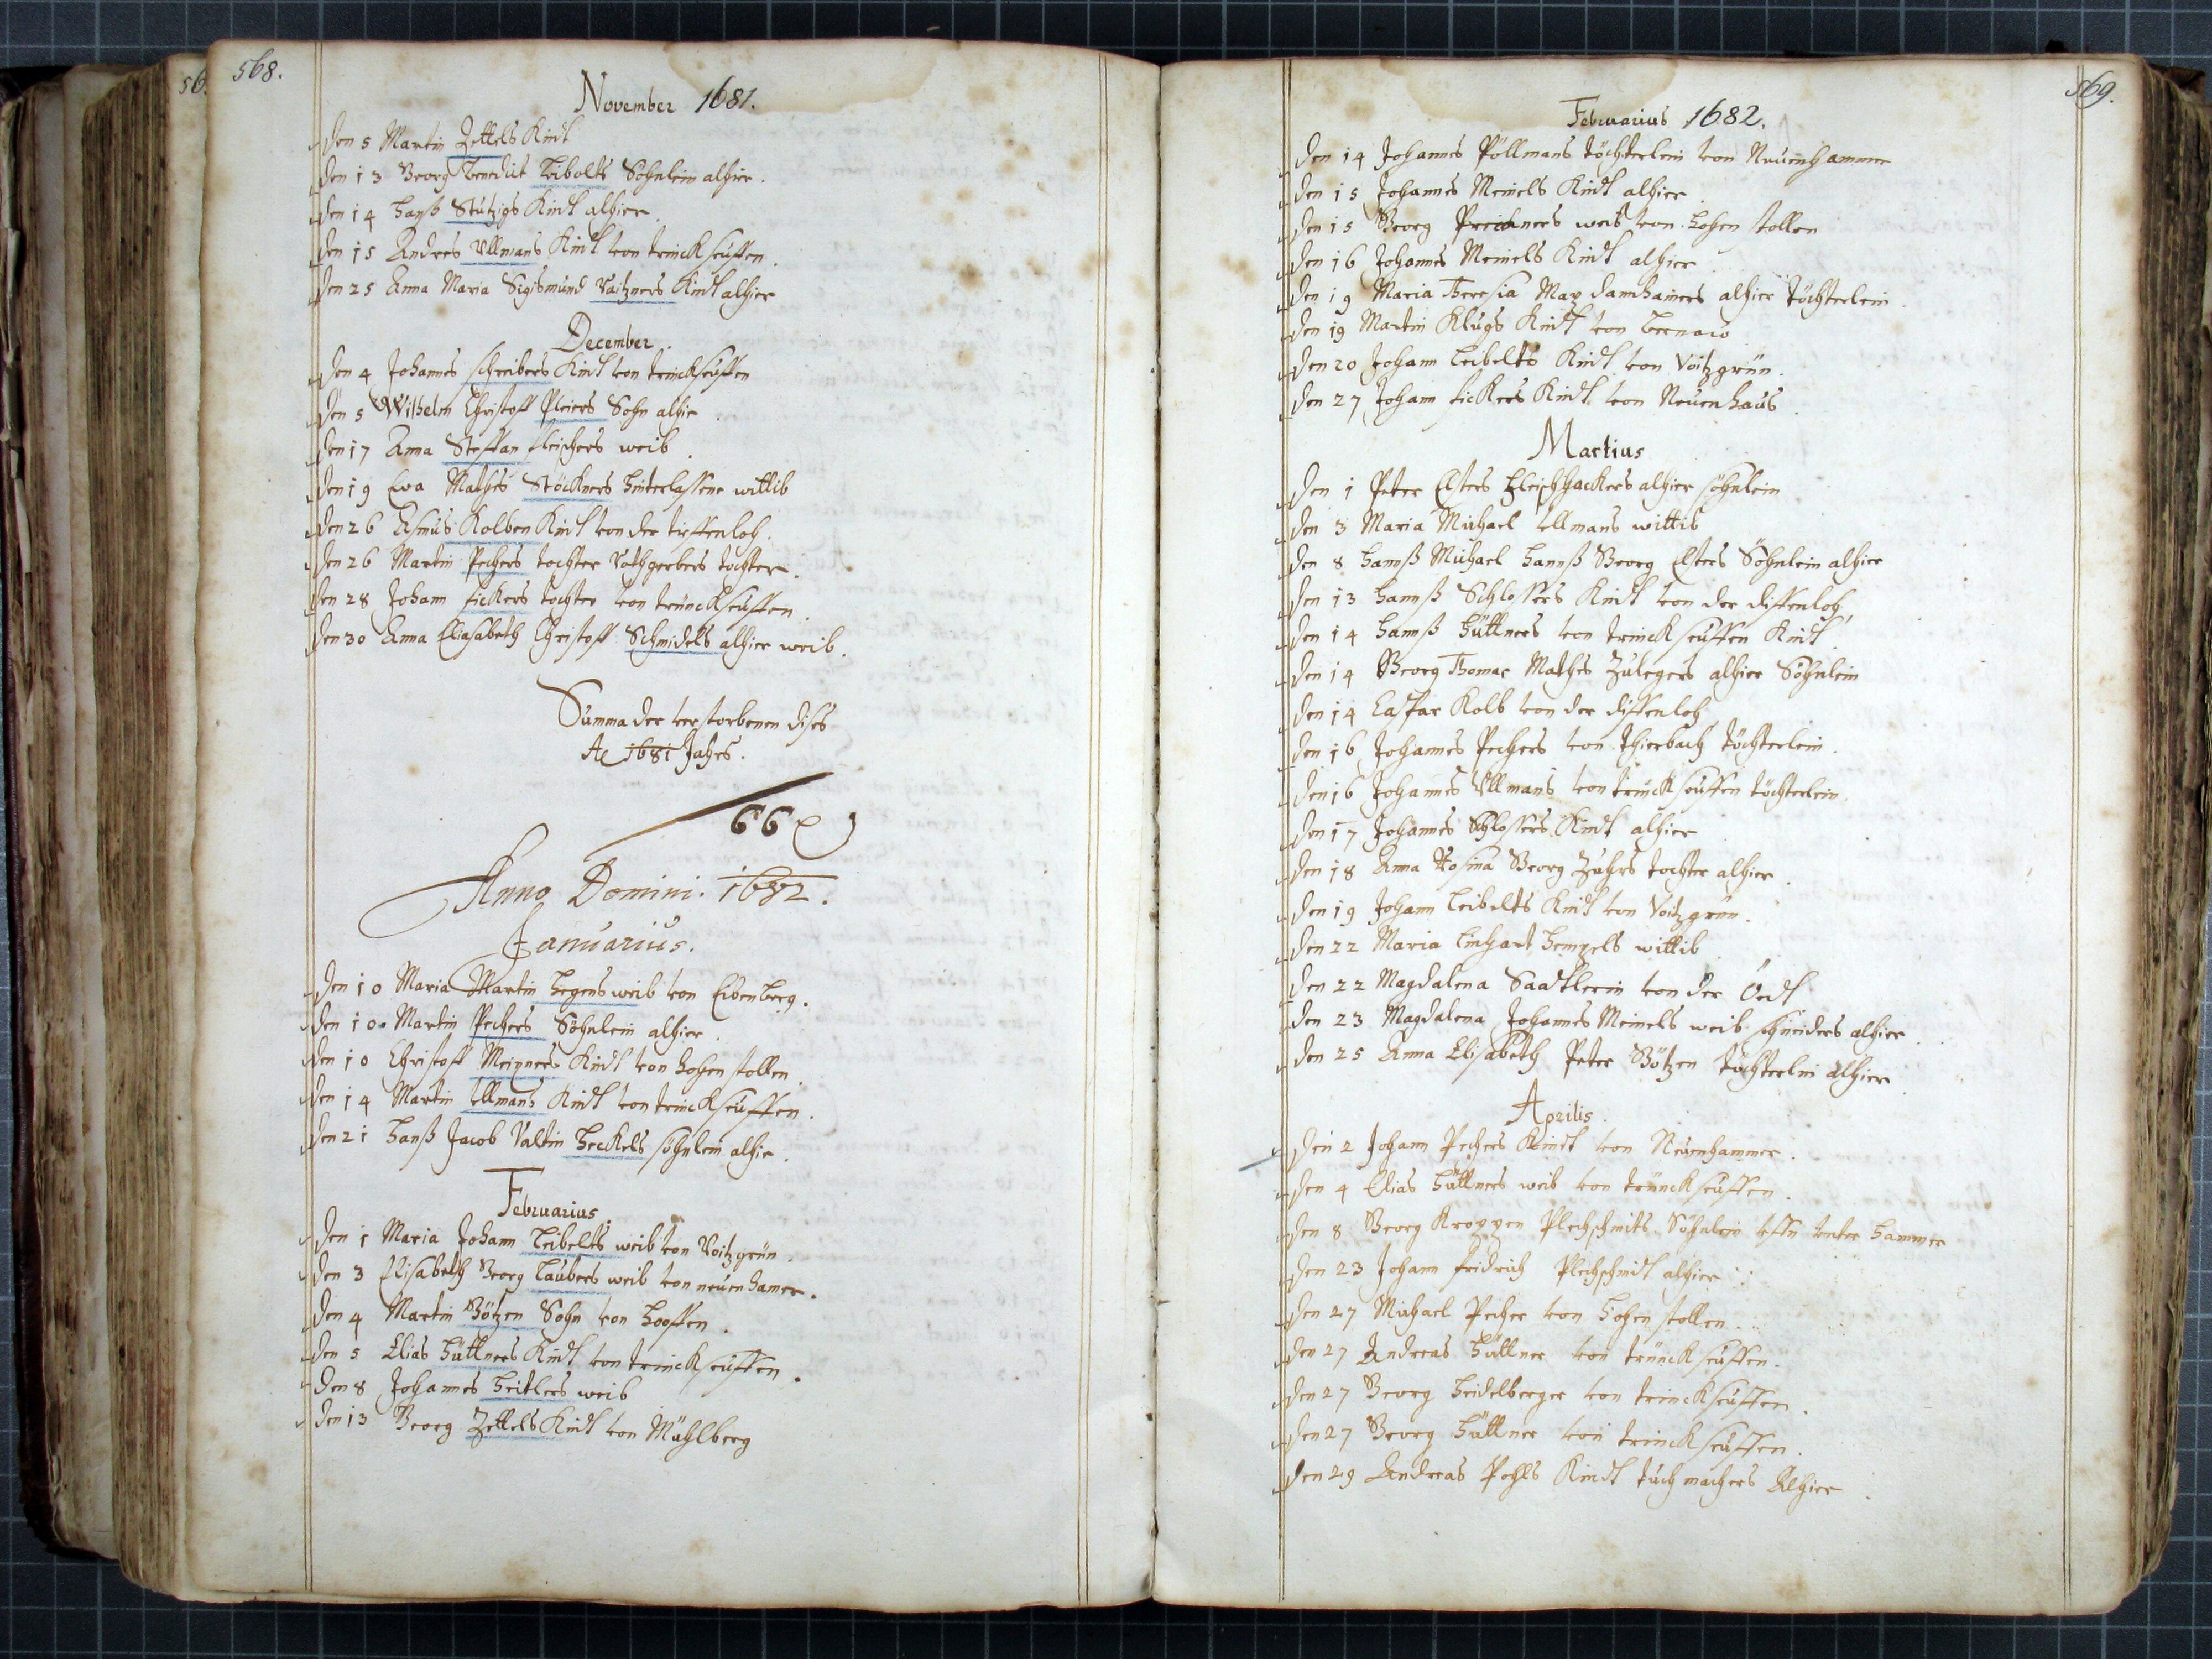 568.
November 1681.
den 5 Martin Zettels Kindt
den 13 Georg Benedict Leibolts Söhnlein alhier.
den 14 Hanß Stützigs Kindt alhier.
den 15 Andres Ullmans Kindt von trinckseuffen.
den 25 Anna Maria Sigismund Raitzners Kindt alhier
December.
den 4 Johannes Schreibers Kindt von trinckseuffen
den 5 Wilhelm Christoff Pleiers Sohn alhie
den 17 Anna Steffan fleischers weib.
den 19 Eva Mathes Stöckners hinterlassene wittib
den 26 Asmus Kolben Kindt von der tieffenloh.
den 26 Martin Pechers tochter Rothgerbers tochter.
den 28 Johann fickers tochter von trünckseuffen.
den 30 Anna Eliasabeth Christoff Schmidels alhier weib.
Summa der verstorbenen dises
Ae 1681 Jahrs.
66
Anno Domini. 1682.
Januarius.
den 10 Maria Martin Hegens weib von Eibenberg.
den 10. Martin Pechers Söhnlein alhier.
den 10 Christoff Meinners Kindt von hohenstollen.
den 14 Martin Ullmans Kindt von trinckseuffen.
den 21 Hanß Jacob Valtin Heckels söhnlein alhie.
Februarius.
den 1 Maria Johann Leibelts weib von Voitzgrün.
den 3 Elisabeth Georg Taubers weib von neuenhamer.
den 4 Martin Götzen Sohn von Hooffen.
den 5 Elias Hüttners Kindt von trinckseuffen.
den 8 Johannes Heitlers weib
den 13 Georg Zettels Kindt von Mühlberg
569.
Februarius 1682.
den 14 Johannes Pöllmans töchterlein von Neuenhammer
den 15 Johannes Meinels Kindt alhier
den 15 Georg weib von Hohenstollen
den 16 Johannes Meinels Kindt alhier
den 19 Maria Theresia May damhainers alhier töchterlein
den 19 Martin Klugs Kindt von Bernaw
den 20 Johann Leibelts Kindt von Voitzgrün.
den 27 Johann fickers Kindt von Neuenhaus
Martius
den 1 Peter Elsters fleischhackers alhier söhnlein
den 3 Maria Michael Ullmans wittib
den 8 Hannß Michael Hannß Georg Elsters Söhnlein alhier
den 13 Hannß Schlossers Kindt von der diffenloh
den 14 Hannß Hüttners von trinckseuffen Kindt.
den 14 Georg Thomas Mathes Zulegers alhier Söhnlein
den 14 Caspar Kolb von der diffenloh
den 16 Johannes Pechers von Thierbach töchterlein.
den 16 Johannes Ullmans von trünckseuffen töchterlein.
den 17 Johannes Schlossers Kindt alhier
den 18 Anna Rosina Georg Zuhrs tochter alhier.
den 19 Johann Leibelts Kindt von Voitzgrün.
den 22 Maria Linhart Hempels wittib
den 22 Magdalena Saadtlerin von der Öedt
den 23 Magdalena Johannes Meinels weib schneiders alhier.
den 25 Anna Elisabeth Peter Götzen töchterlin alhier
Aprilis.
den 2 Johann Pechers Kindt von Neuenhammer.
den 4 Elias Hüttners weib von trünckseuffen.
den 8 Georg Plechschmits Söhnlein Hammer
den 23 Johann fridrich Plechschmidt alhier
den 27 Michael Pecher von Hohenstollen.
den 27 Andreas Hüttner von trünckseuffen.
den 27 Georg Heidelberger von trinckseuffen.
den 27 Georg Hüttner von trinckseuffen.
den 29 Andreas Pohls Kindt tuchmachers Alhier.